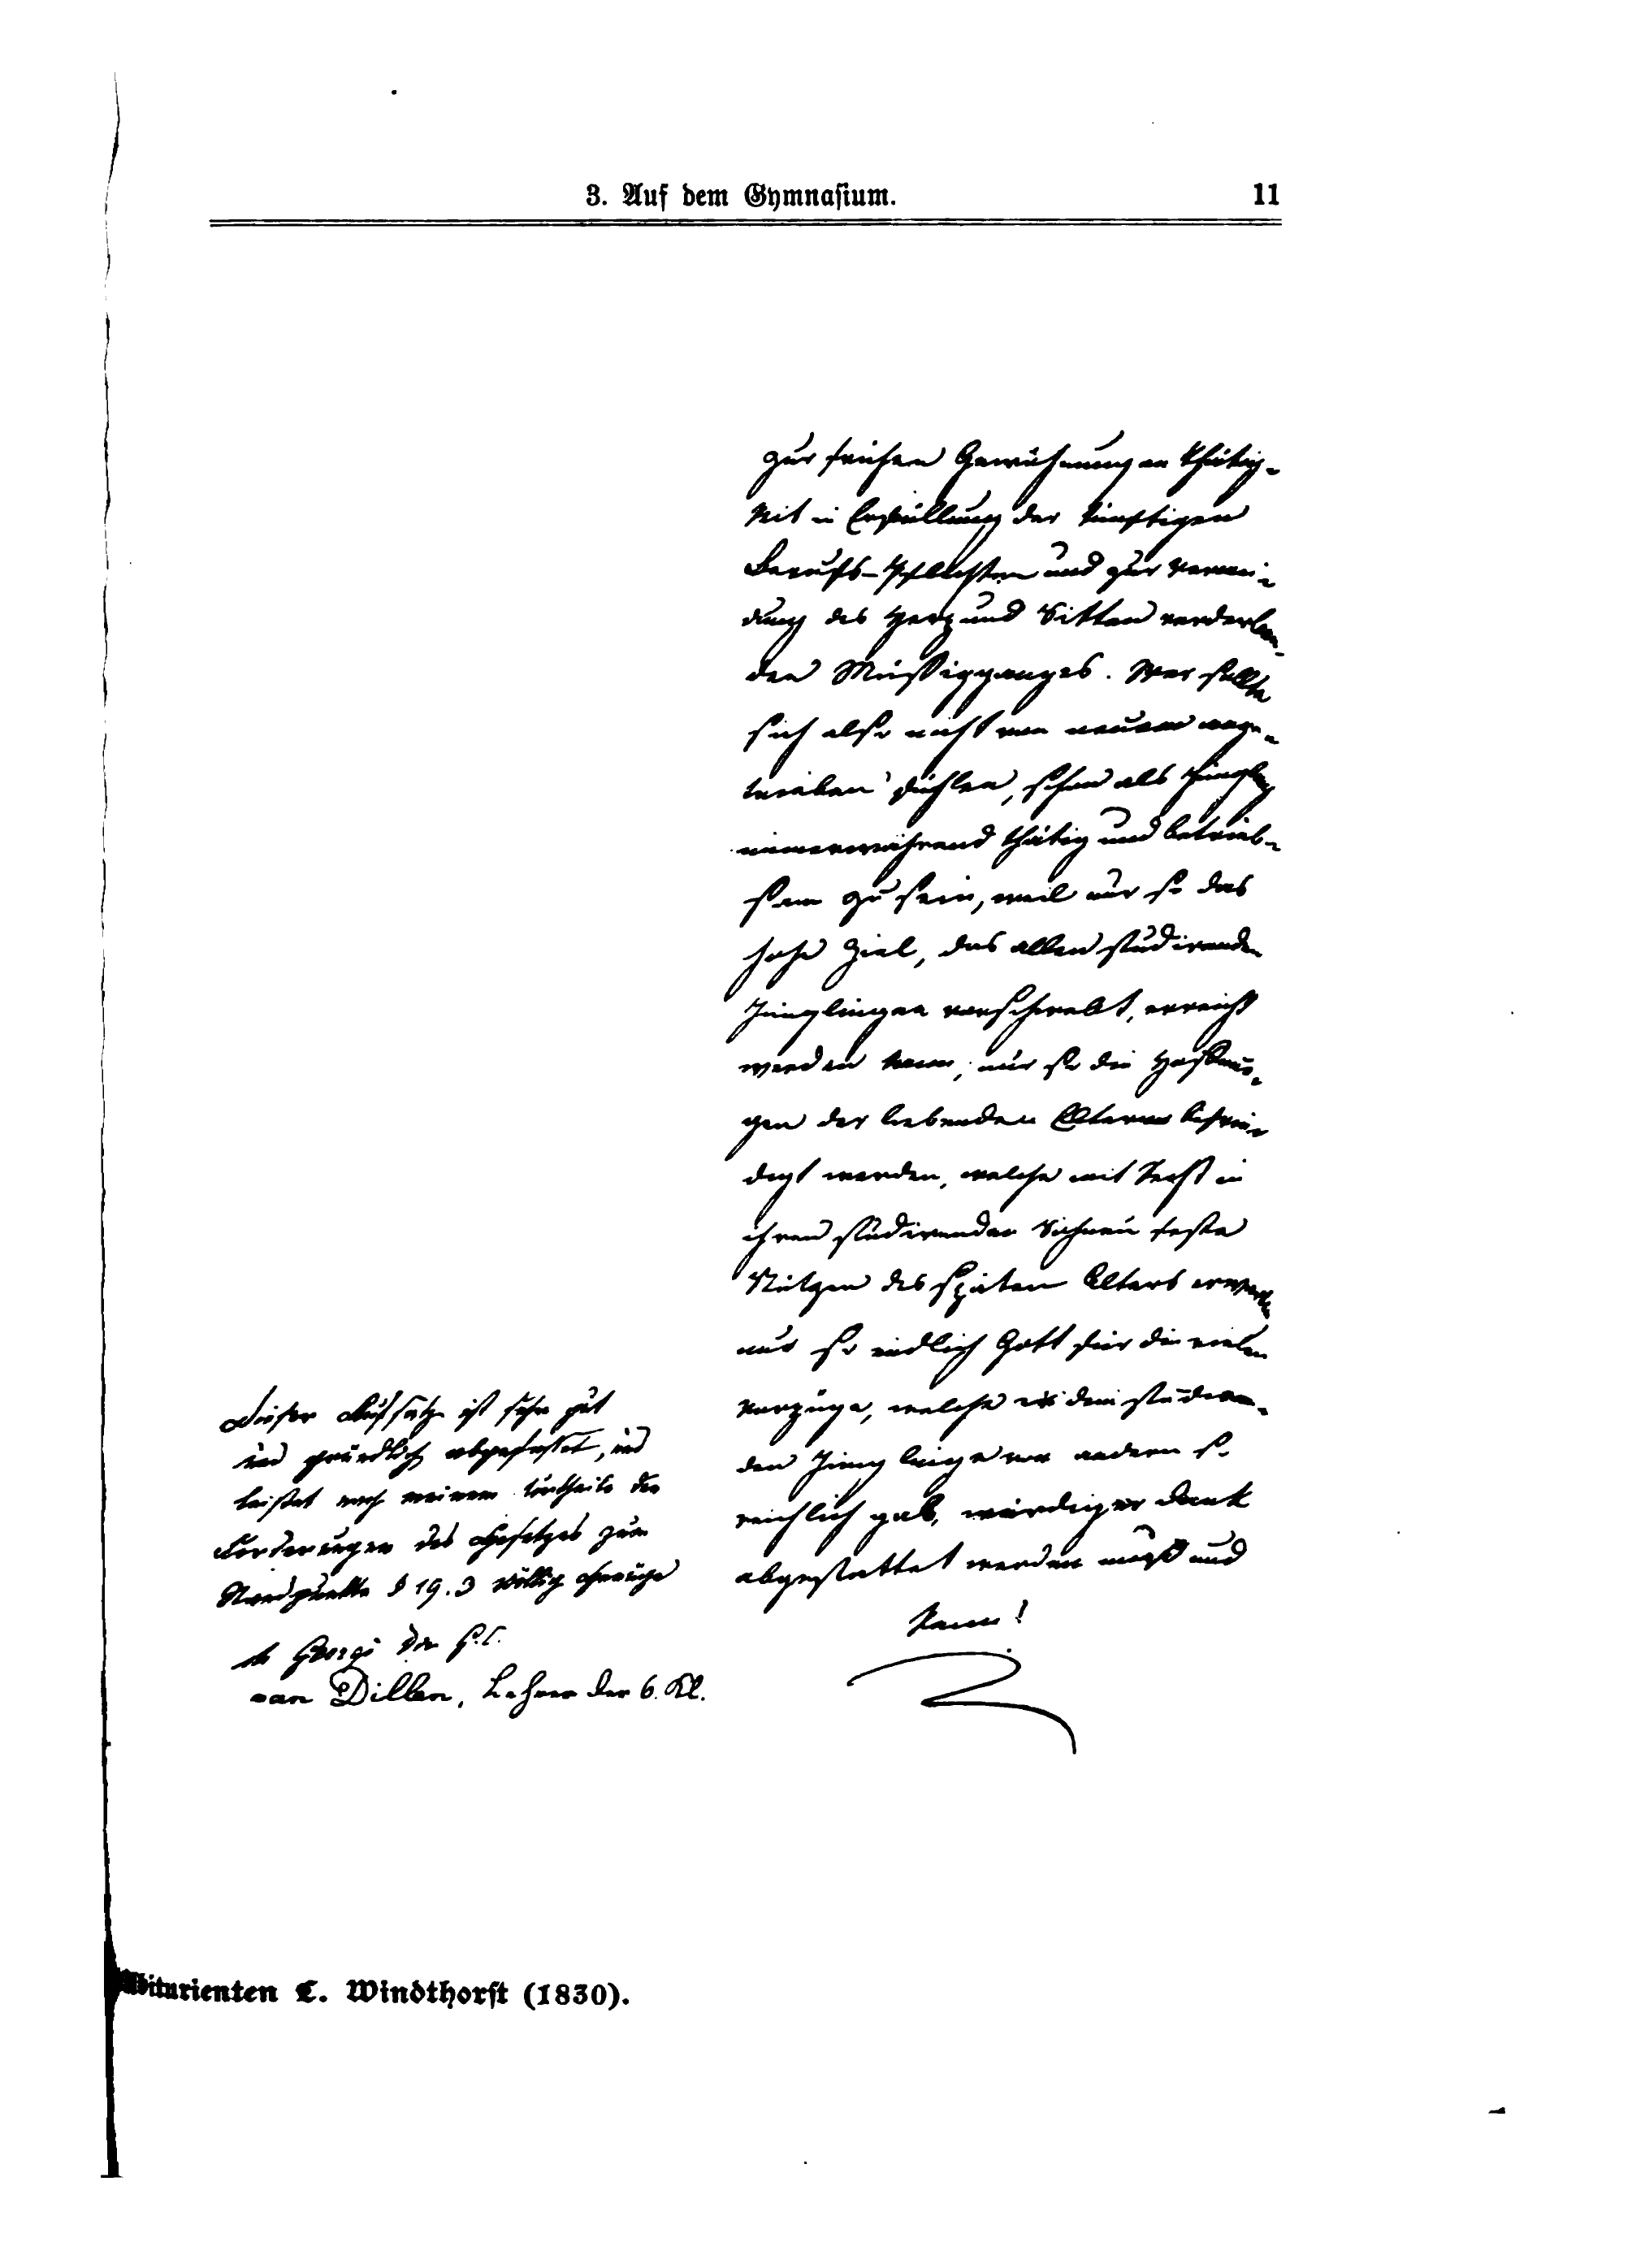 3. Auf dem Gymnasium. 11
zur frühen Gewöhnung an Thätig-
keit in Erfüllung der künftigen
Berufs-Pflichten und zur Vermei-
dung des Herz und Sitten verderben-
den Müßigganges. Wer sollte
sich also nicht von neuem ange-
trieben fühlen, schon als Jüngling
immerwährend thätig und betrieb-
sam zu sein, weil nur so das
hohe Ziel, das allen studirenden
Jünglingen vorschwebt, erreicht
werden kann, nur so die Hoffnun-
gen der liebenden Eltern befrie-
digt werden, welche mit Recht in
ihren studirenden Söhnen feste
Stützen des späten Alters erwarten
nur so endlich Gott für die vielen
Vorzüge, welche er dem studiren-
den Jünglinge vor andern so
reichlich gab, würdiger Dank
abgestattet werden muß und
kann!
Dieser Aufsatz ist sehr gut
und gründlich abgefasset, und
leistet nach meinem Urtheile den
Forderungen des Gesetzes zum
§ 19.3 völlig Genüge
van Dillen, Lehrer der 6. Kl.
Abiturienten L. Windthorst (1830).